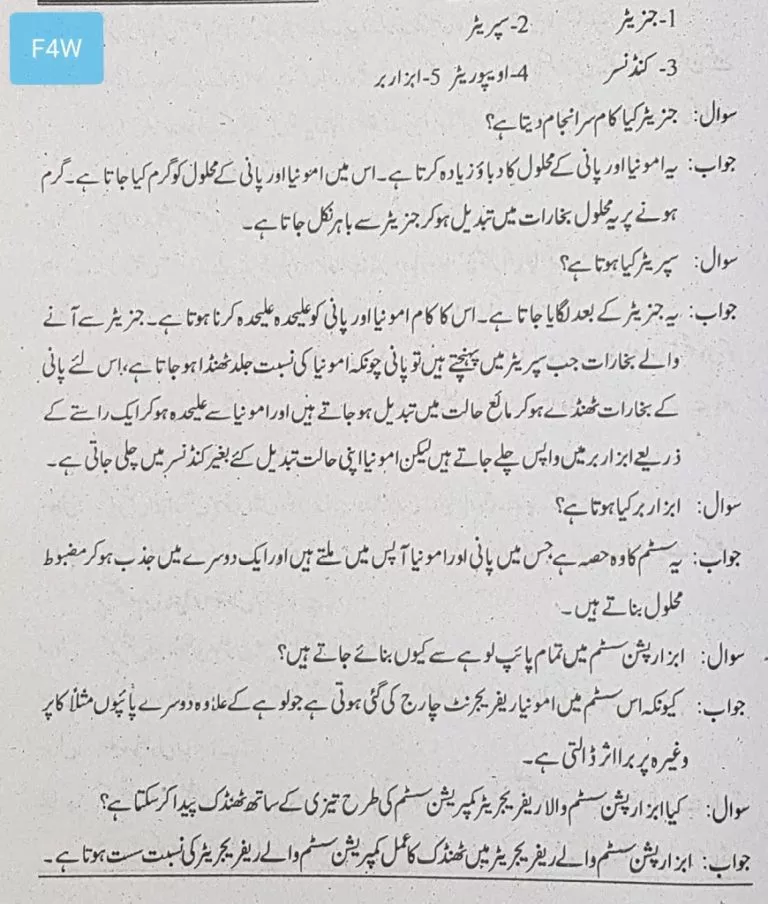 F4W
1- جنریٹر 2- سپریٹر
3- کنڈنسر 4- اویپوریٹر 5- ابزاربر
سوال: جنریٹر کیا کام سرانجام دیتا ہے؟
جواب: یہ امونیا اور پانی کے محلول کا دباؤ زیادہ کرتا ہے۔ اس میں امونیا اور پانی کے محلول کو گرم کیا جاتا ہے۔ گرم
ہونے پر یہ محلول بخارات میں تبدیل ہو کر جنریٹر سے باہر نکل جاتا ہے۔
سوال: سپریٹر کیا ہوتا ہے؟
جواب: یہ جنریٹر کے بعد لگایا جاتا ہے۔ اس کا کام امونیا اور پانی کو علیحدہ علیحدہ کرنا ہوتا ہے۔ جنریٹر سے آنے
والے بخارات جب سپریٹر میں پہنچتے ہیں تو پانی چونکہ امونیا کی نسبت جلد ٹھنڈا ہو جاتا ہے، اس لئے پانی
کے بخارات ٹھنڈے ہو کر مائع حالت میں تبدیل ہو جاتے ہیں اور امونیا سے علیحدہ ہو کر ایک راستے کے
ذریعے ابزاربر میں واپس چلے جاتے ہیں لیکن امونیا اپنی حالت تبدیل کئے بغیر کنڈنسر میں چلی جاتی ہے۔
سوال: ابزاربر کیا ہوتا ہے؟
جواب: یہ سسٹم کا وہ حصہ ہے جس میں پانی اور امونیا آپس میں ملتے ہیں اور ایک دوسرے میں جذب ہو کر مضبوط
محلول بناتے ہیں۔
سوال: ابزارپشن سسٹم میں تمام پائپ لوہے سے کیوں بنائے جاتے ہیں؟
جواب: کیونکہ اس سسٹم میں امونیا ریفریجرنٹ چارج کی گئی ہوتی ہے جو لوہے کے علاوہ دوسرے پائپوں مثلاً کاپر
وغیرہ پر برا اثر ڈالتی ہے۔
سوال: کیا ابزارپشن سسٹم والا ریفریجریٹر کمپریشن سسٹم کی طرح تیزی کے ساتھ ٹھنڈک پیدا کر سکتا ہے؟
جواب: ابزارپشن سسٹم والے ریفریجریٹر میں ٹھنڈک کا عمل کمپریشن سسٹم والے ریفریجریٹر کی نسبت سست ہوتا ہے۔